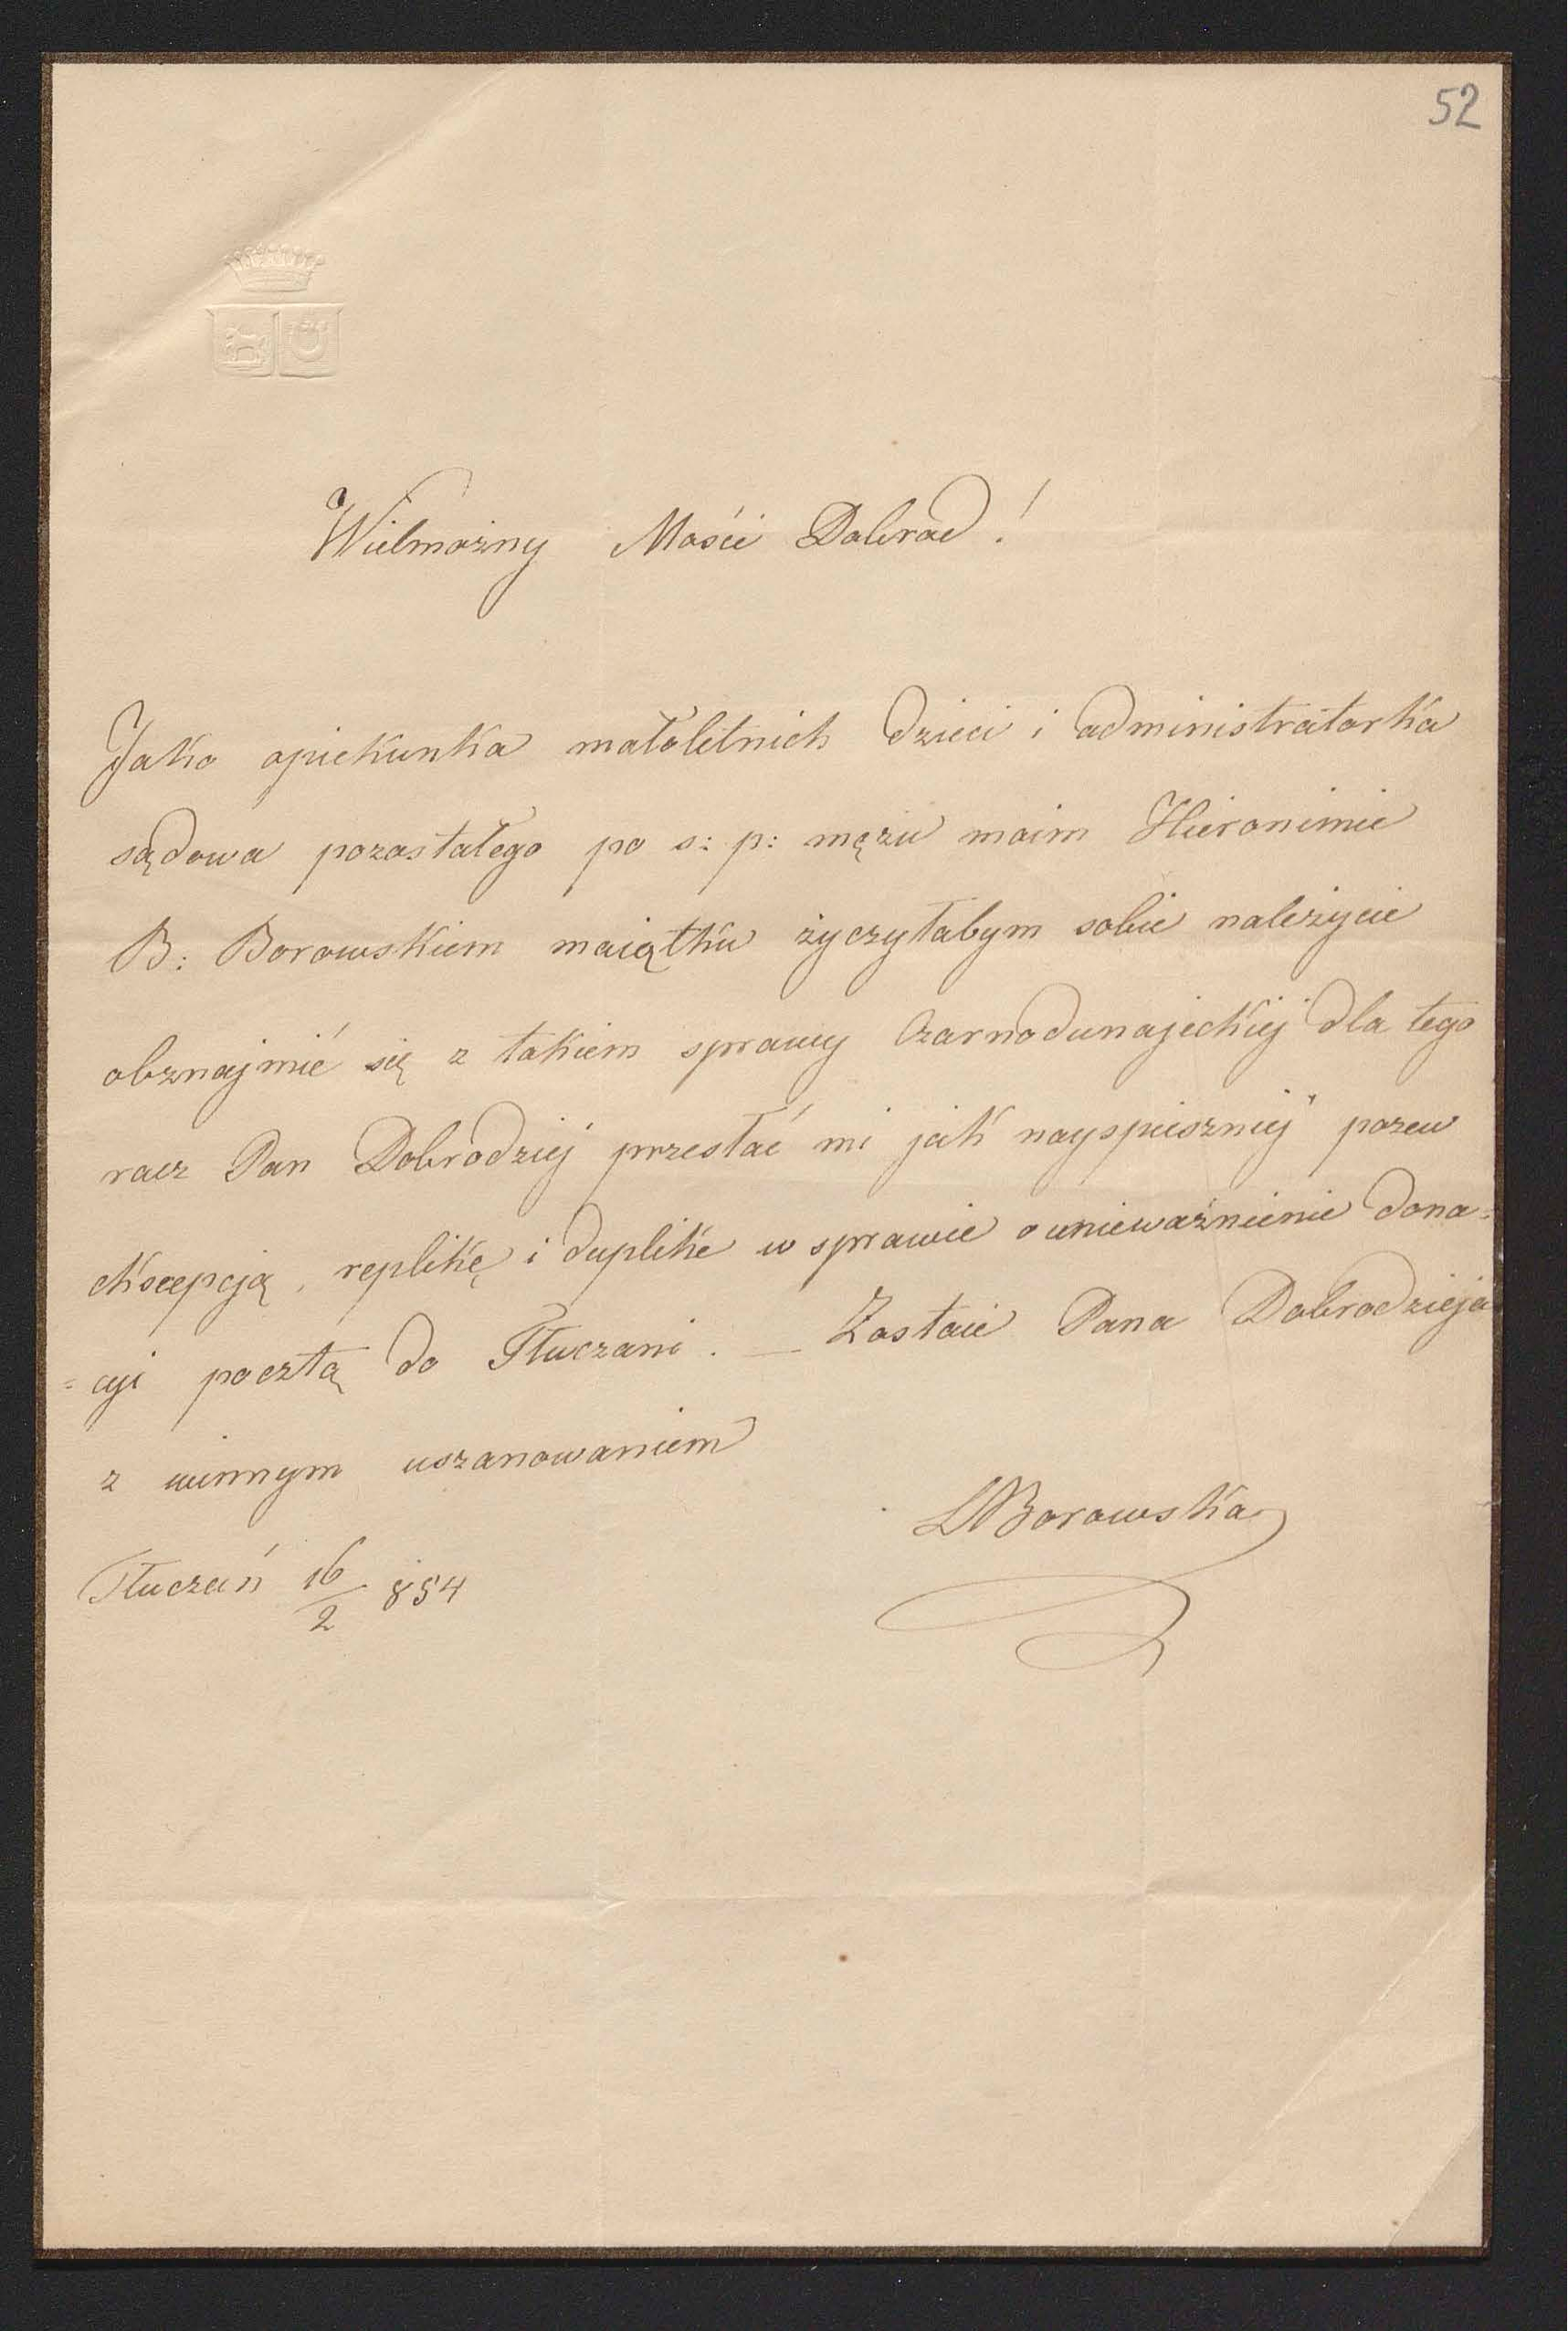 52
Wielmożny Mości Dobrod!
Jako opiekunka małoletnich dzieci i administratorka
sądowa pozostałego po s: p: mężu moim Hieronimie
B: Borowskiem maiątku życzyłabym sobie należycie
obznajmić się z tokiem sprawy Czarnodunajeckiej dla tego
racz Pan Dobrodziej przesłać mi jak nayspieszniej pozew
ekscepcją, replikę i duplikę w sprawie o unieważnienie dona=
=cyi pocztą do Tłuczani. — Zostaie Pana Dobrodzieja
z winnym uszanowaniem
LBorowska
Tłuczań 16/2 854